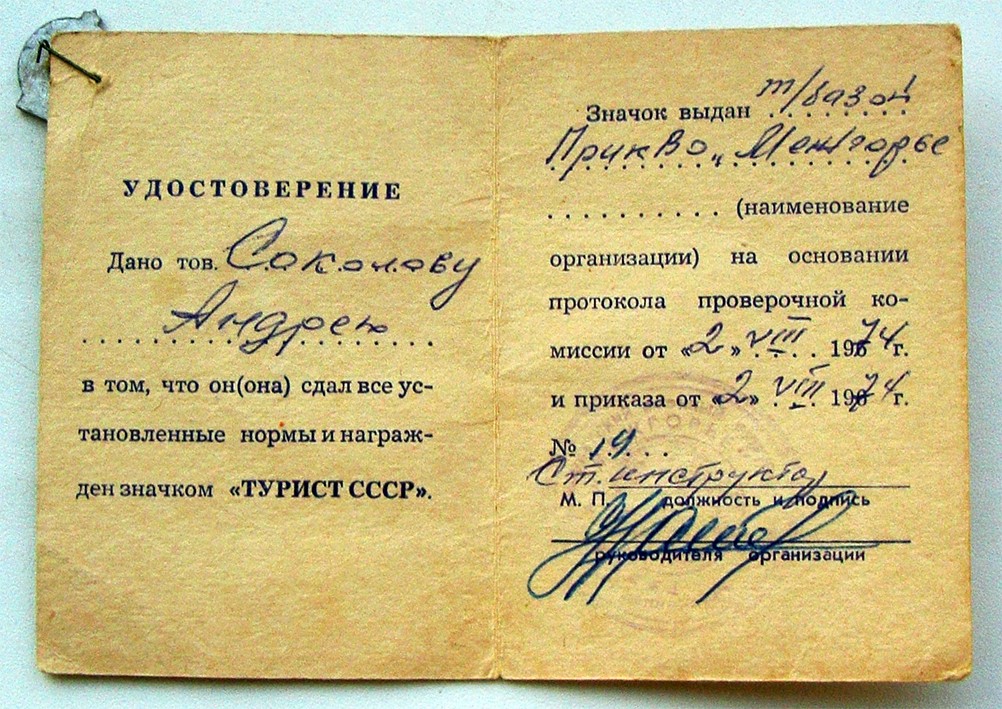 УДОСТОВЕРЕНИЕ
Дано тов. Соколову
Андрею
в том, что он(она) сдал все ус-
тановленные нормы и награж-
ден значком «ТУРИСТ СССР».
Значок выдан т/базой
ПрикВо „Межгорье
(наименование
организации) на основании
протокола проверочной ко-
миссии от «2» VIII 1974 г.
и приказа от «2» VIII 1974 г.
№ 19
Ст. инструктор
М. П. должность и подпись
руководителя организации